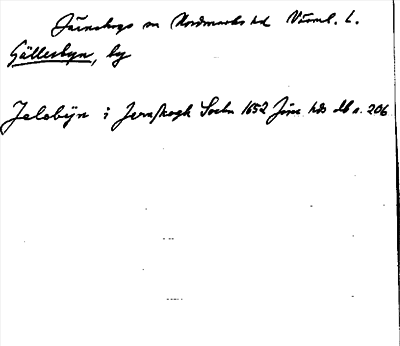 Järnskogs sn Nordmarks hd Värml. L.
Gällersbyn, by
Jelebÿn i Jernskogh Sockn 1652 Jösse hds db s. 206